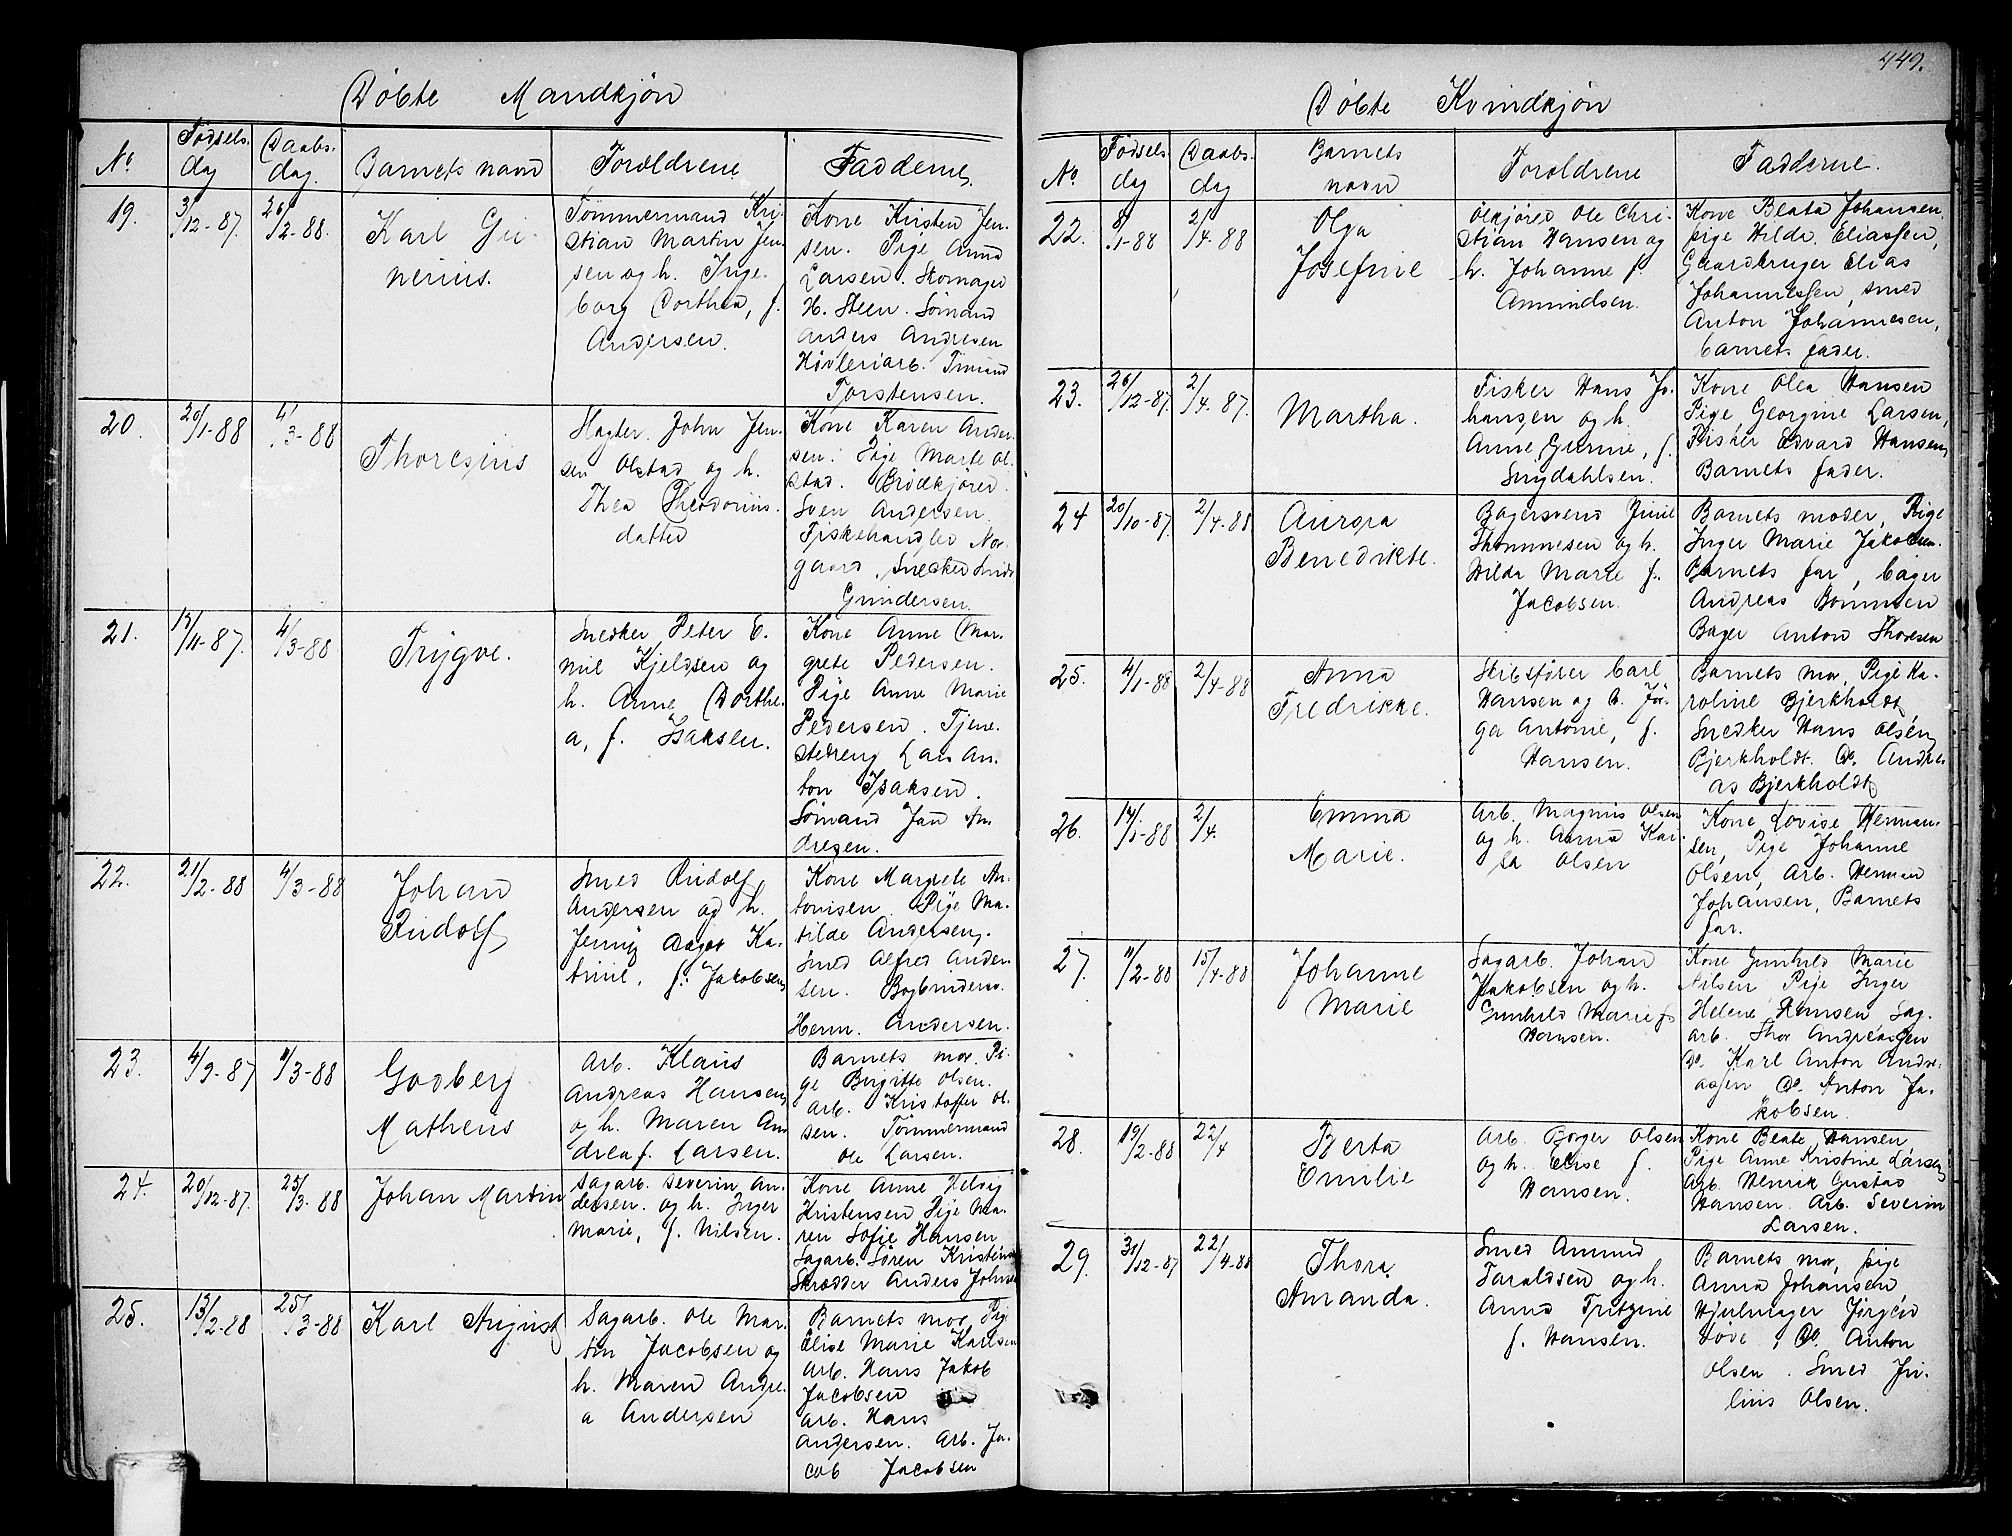 449.
Döbte Mandkjön
No.
Födsels-
dag
Daabs-
dag.
Barnets navn
Foroldrene
Fadderne.
19.
3/12-87.
26/2-88.
Karl Gu-
nerius.
Tömmermand Kri-
stian Martin Jen-
sen og h. Inge-
borg Dorthea, f.
Andersen.
Kone Kirsten Jen-
sen. Pige Anna
Larsen. Skomager
H. Steen. Sömand
Anders Andresen
Hövleriarb.
Torstensen.
20.
20/1-88
4/3-88
Thoresius
John Jen-
sen Olstad og h.
Thea Theodorius-
datter
Kone Karen Ander-
sen. Pige Marte Ol-
stad. Brödkjörer
Sven Andersen.
Fiskehandler Nor-
gaard, Snecker
Gundersen.
21.
17/11-87.
4/3-88
Trygve.
Snedker Peter E-
mil Kjeldsen og
h. Anne Dorthe-
a, f. Isaksen.
Kone Anne Mar-
grete Pedersen.
Pige Anne Marie
Pedersen. Tjene-
stedreng Lars An-
ton Isaksen.
Sömand Jan An-
dresen.
22.
21/2-88
4/3-88
Johan
Rudolf
Smed Rudolf
Andersen og h.
Jenny Dagot Ka-
trine, f. Jakobsen
Kone Margrete An-
tonisen Pige Ma-
tilde Andersen.
Smed Alfred Ander-
sen. Bogbindersv.
Herm. Andersen.
23.
4/9-87
4/3-88
Godberg
Matheus
Arb. Klaus
Andreas Hansen
og h. Maren An-
drea f. Larsen.
Barnets mor. Pi-
ge Birgitte Olsen.
Arb. Kristoffer Ol-
sen. Tömmermand
Ole Larsen.
24.
20/12-87.
25/3-88
Johan Martin
Sagarb. Severin An-
dersen og h. Inger
Marie, f. Nilsen.
Kone Anne Helvig
Kristensen Pige Ma-
ren Sofie Hansen
Sagarb. Sören Kristens
Skrædder Anders Johns
25.
13/2-88
25/3-88
Karl August
Sagarb. Ole Mar-
tin Jacobsen og
h. Maren Andre-
a Andersen
Barnets mor, Pige
Elise Marie Karlsen
Arb. Hans Jakob
Jacobsen
Arb. Hans
Andersen. Arb. Ja-
cob Jacobsen
Döbte Kvindkjön
No.
Födsels-
dag
Daabs-
dag
Barnets
navn
Foroldrene
Fadderne.
22.
8/1-88
2/4-88
Olga
Josefine
Ölkjörer Ole Chri-
stian Hansen og
h. Johanne f.
Amundsen.
Kone Beata Johansen,
pige Hilda Eliassen,
Gaardbruger Elias
Johannessen, smed
Anton Johannesen,
barnets fader.
23.
26/12-87.
2/4-87.
Martha.
Fisker Hans Jo-
hansen og h.
Anne Gurine, f.
Snydahlsen.
Kone Olea Hansen
Pige Georgine Larsen,
Fisker Edvard Hansen
Barnets fader.
24
20/10-87.
2/4-88
Aurora
Benedikte.
Bagersvend June
Thommesen og h.
Hilda Marie f.
Jacobsen.
Barnets moder, Pige
Inger Marie Jakobsen.
Barnets far, bager
Andreas
Bager Anton Thoresen
25.
4/1-88
2/4-88
Anna
Fredrikke.
Skibsförer Carl
Hansen og h. Jör-
ga Antonie, f.
Hansen.
Barnets mor, Pige Ka-
roline Bjerkholdt
Snedker Hans Olsen
Bjerkholdt. Do. Andre
as Bjerkholdt
26.
14/1-88
2/4.
Emma
Marie.
Arb. Magnus Olsen
og h. Anna Kar-
sa Olsen
Kone Lovise Herman-
sen, Pige Johanne
Olsen, Arb. Herman
Johansen, Barnets
far.
27.
11/2-88
15/4-88
Johanne
Marie
Sagarb. Johan
Jakobsen og h.
Gunhild Marie f
Hansen.
Kone Gunhild Marie
Nilsen Pige Inger
Helene Hansen Sag-
arb. Thor Andreassen
Do. Karl Anton Andre-
assen Do. Anton Ja-
kobsen.
28.
19/2-88
22/4
Berta
Emilie
Arb. Borger Olsen
og h. Elise f.
Hansen.
Kone Beate Hansen
Pige Anne Kristine Larsen
Arb. Henrik Gustav
Hansen. Arb. Severin
Larsen.
29.
31/12-87
22/4-88
Thora
Amanda.
Smed Amund
Taraldsen og h.
Anna
f. Hansen.
Barnets mor, pige
Anna Johansen,
Hjulmager Jörgen
Töve, Do. Anton
Olsen. Smed Ju-
lius Olsen.